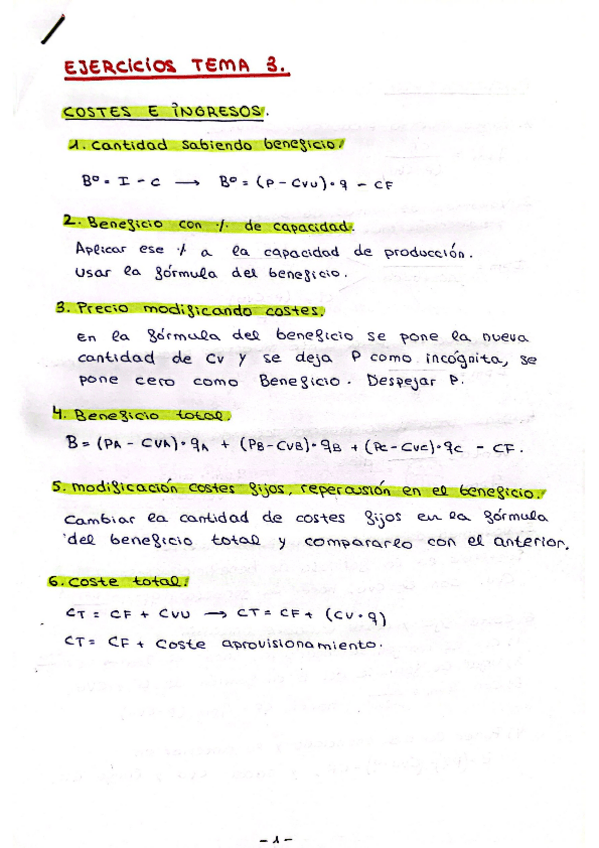 EJERCICIOS TEMA 3.
COSTES E INGRESOS.
1. Cantidad sabiendo beneficio:
Bº = I - C → Bº = (P - CVU) · q - CF
2. Beneficio con % de capacidad.
Aplicar ese % a la capacidad de producción.
Usar la fórmula del beneficio.
3. Precio modificando costes.
En la fórmula del beneficio se pone la nueva
cantidad de CV y se deja P como incógnita, se
pone cero como Beneficio. Despejar P.
4. Beneficio total.
B = (PA - CVA) · qA + (PB - CVB) · qB + (PC - CVC) · qC - CF.
5. Modificación costes fijos, repercusión en el beneficio:
Cambiar la cantidad de costes fijos en la fórmula
del beneficio total y compararlo con el anterior.
6. Coste total:
CT = CF + CVU → CT = CF + (CV · q)
CT = CF + Coste aprovisionamiento.
- 1 -